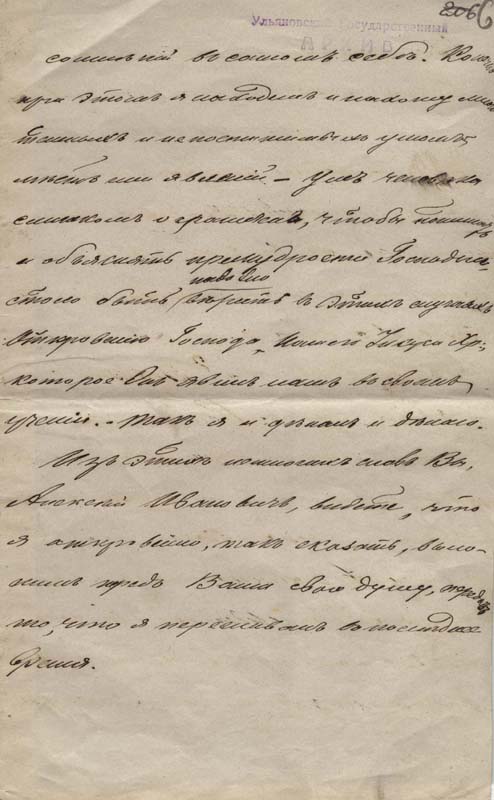 206 6
Ульяновский Государственный
АРХИВ
сомнѣній въ самомъ себѣ.
при этомъ я находилъ и нахожу
и непостижимыхъ умомъ
явленій. — Умъ человѣка
слишкомъ ограниченъ, чтобы
и объяснять премудрость
надо было
вѣрить въ этихъ случаяхъ
Откровенію Господа нашего Іисуса Хр.
которое Онъ явилъ намъ въ своемъ
ученіи. Такъ я и дѣлалъ и дѣлаю.
Изъ этихъ немногихъ словъ Вы,
Алексѣй Ивановичъ, видите, что
я откровенно, такъ сказать,
предъ Вами свою душу,
то, что я переживалъ въ послѣднее
время.